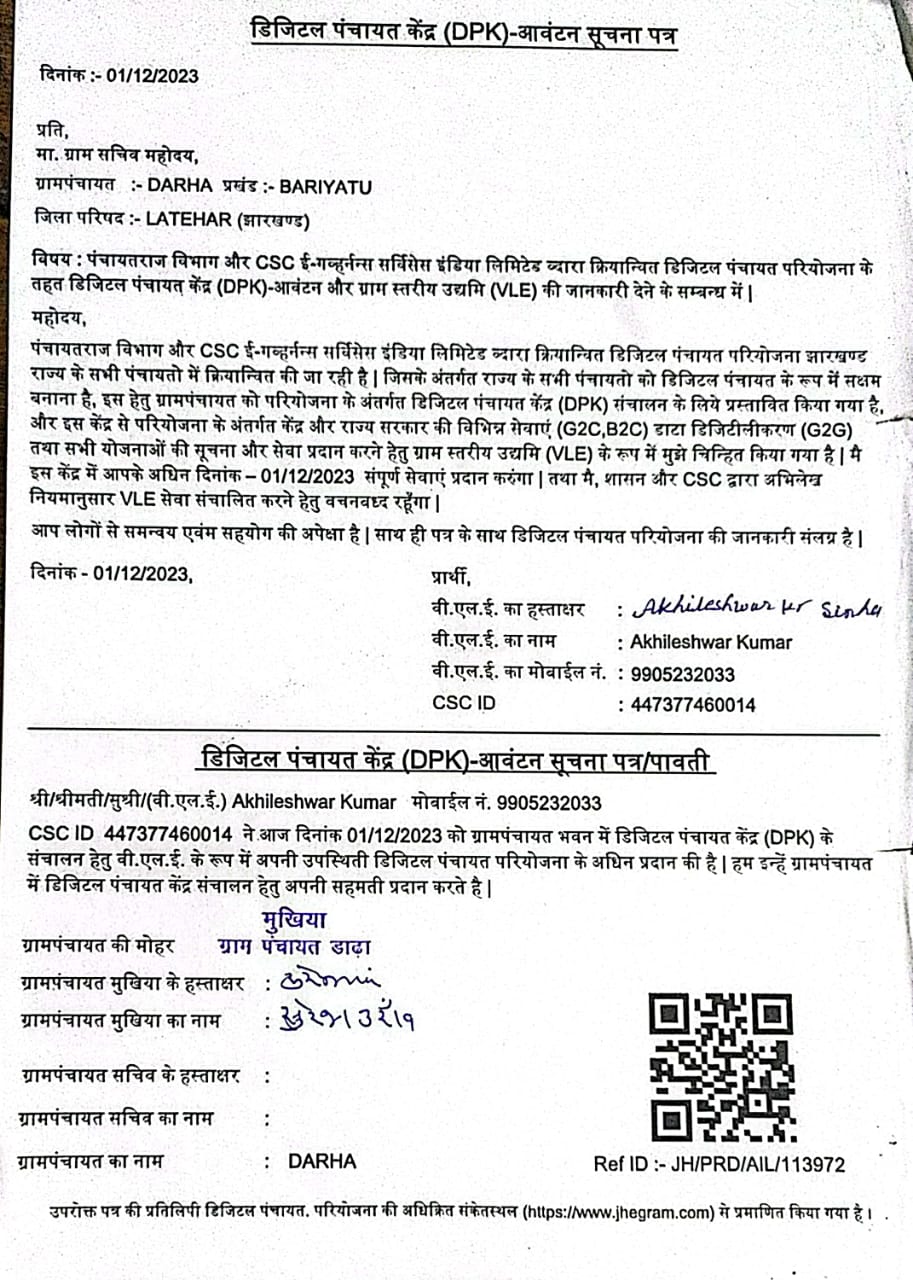 डिजिटल पंचायत केंद्र (DPK)-आवंटन सूचना पत्र
दिनांक :- 01/12/2023
प्रति,
मा. ग्राम सचिव महोदय,
ग्रामपंचायत :- DARHA प्रखंड :- BARIYATU
जिला परिषद :- LATEHAR (झारखण्ड)
विषय : पंचायतराज विभाग और CSC ई-गव्हर्नन्स सर्विसेस इंडिया लिमिटेड व्दारा क्रियान्वित डिजिटल पंचायत परियोजना के
तहत डिजिटल पंचायत केंद्र (DPK)-आवंटन और ग्राम स्तरीय उद्यमि (VLE) की जानकारी देने के सम्बन्ध में |
महोदय,
पंचायतराज विभाग और CSC ई-गव्हर्नन्स सर्विसेस इंडिया लिमिटेड व्दारा क्रियान्वित डिजिटल पंचायत परियोजना झारखण्ड
राज्य के सभी पंचायतो में क्रियान्वित की जा रही है | जिसके अंतर्गत राज्य के सभी पंचायतो को डिजिटल पंचायत के रूप में सक्षम
बनाना है, इस हेतु ग्रामपंचायत को परियोजना के अंतर्गत डिजिटल पंचायत केंद्र (DPK) संचालन के लिये प्रस्तावित किया गया है,
और इस केंद्र से परियोजना के अंतर्गत केंद्र और राज्य सरकार की विभिन्न सेवाएं (G2C,B2C) डाटा डिजिटीलीकरण (G2G)
तथा सभी योजनाओं की सूचना और सेवा प्रदान करने हेतु ग्राम स्तरीय उद्यमि (VLE) के रूप में मुझे चिन्हित किया गया है | मै
इस केंद्र में आपके अधिन दिनांक – 01/12/2023 संपूर्ण सेवाएं प्रदान करुंगा | तथा मै, शासन और CSC द्वारा अभिलेख
नियमानुसार VLE सेवा संचालित करने हेतु वचनवध्द रहूँगा |
आप लोगों से समन्वय एवंम सहयोग की अपेक्षा है | साथ ही पत्र के साथ डिजिटल पंचायत परियोजना की जानकारी संलग्न है |
दिनांक - 01/12/2023,
प्रार्थी,
वी.एल.ई. का हस्ताक्षर : Akhileshwar kr Sinha
वी.एल.ई. का नाम : Akhileshwar Kumar
वी.एल.ई. का मोबाईल नं. : 9905232033
CSC ID : 447377460014
डिजिटल पंचायत केंद्र (DPK)-आवंटन सूचना पत्र/पावती
श्री/श्रीमती/सुश्री/(वी.एल.ई.) Akhileshwar Kumar मोवाईल नं. 9905232033
CSC ID 447377460014 ने आज दिनांक 01/12/2023 को ग्रामपंचायत भवन में डिजिटल पंचायत केंद्र (DPK) के
संचालन हेतु वी.एल.ई. के रूप में अपनी उपस्थिती डिजिटल पंचायत परियोजना के अधिन प्रदान की है | हम इन्हें ग्रामपंचायत
में डिजिटल पंचायत केंद्र संचालन हेतु अपनी सहमती प्रदान करते है |
मुखिया
ग्रामपंचायत की मोहर ग्राम पंचायत डाढ़ा
ग्रामपंचायत मुखिया के हस्ताक्षर :
ग्रामपंचायत मुखिया का नाम : उराँव
ग्रामपंचायत सचिव के हस्ताक्षर :
ग्रामपंचायत सचिव का नाम :
ग्रामपंचायत का नाम : DARHA
Ref ID :- JH/PRD/AIL/113972
उपरोक्त पत्र की प्रतिलिपी डिजिटल पंचायत. परियोजना की अधिक्रित संकेतस्थल (https://www.jhegram.com) से प्रमाणित किया गया है।